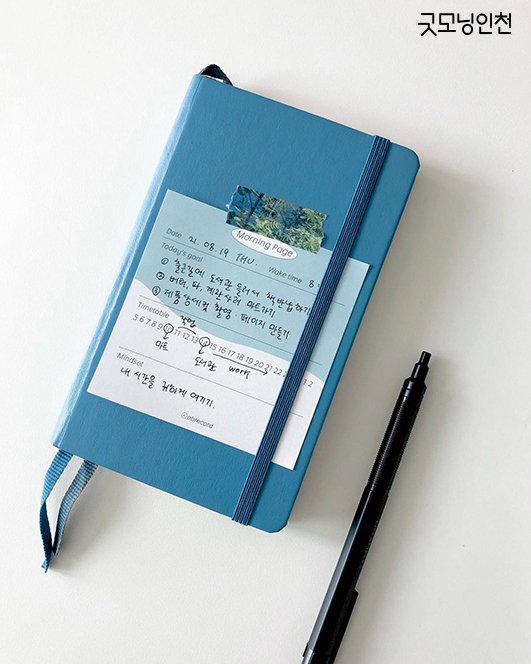 굿모닝인천
Morning Page
Date 21. 08. 19 THU. Wake time 8
Today's goal
① 출근길에 도서관 들러서 책 반납하기
② 버터, 파, 계란 사러 마트가기
③ 제품 상세컷 촬영 페이지 만들기
Timetable 작업
5 6 7 8 9 10 11 12 13 14 15 16 17 18 19 20 21 22 1 2
마트 도서관 work
Mindset
내 시간을 귀하게 여기기.
©obrecord